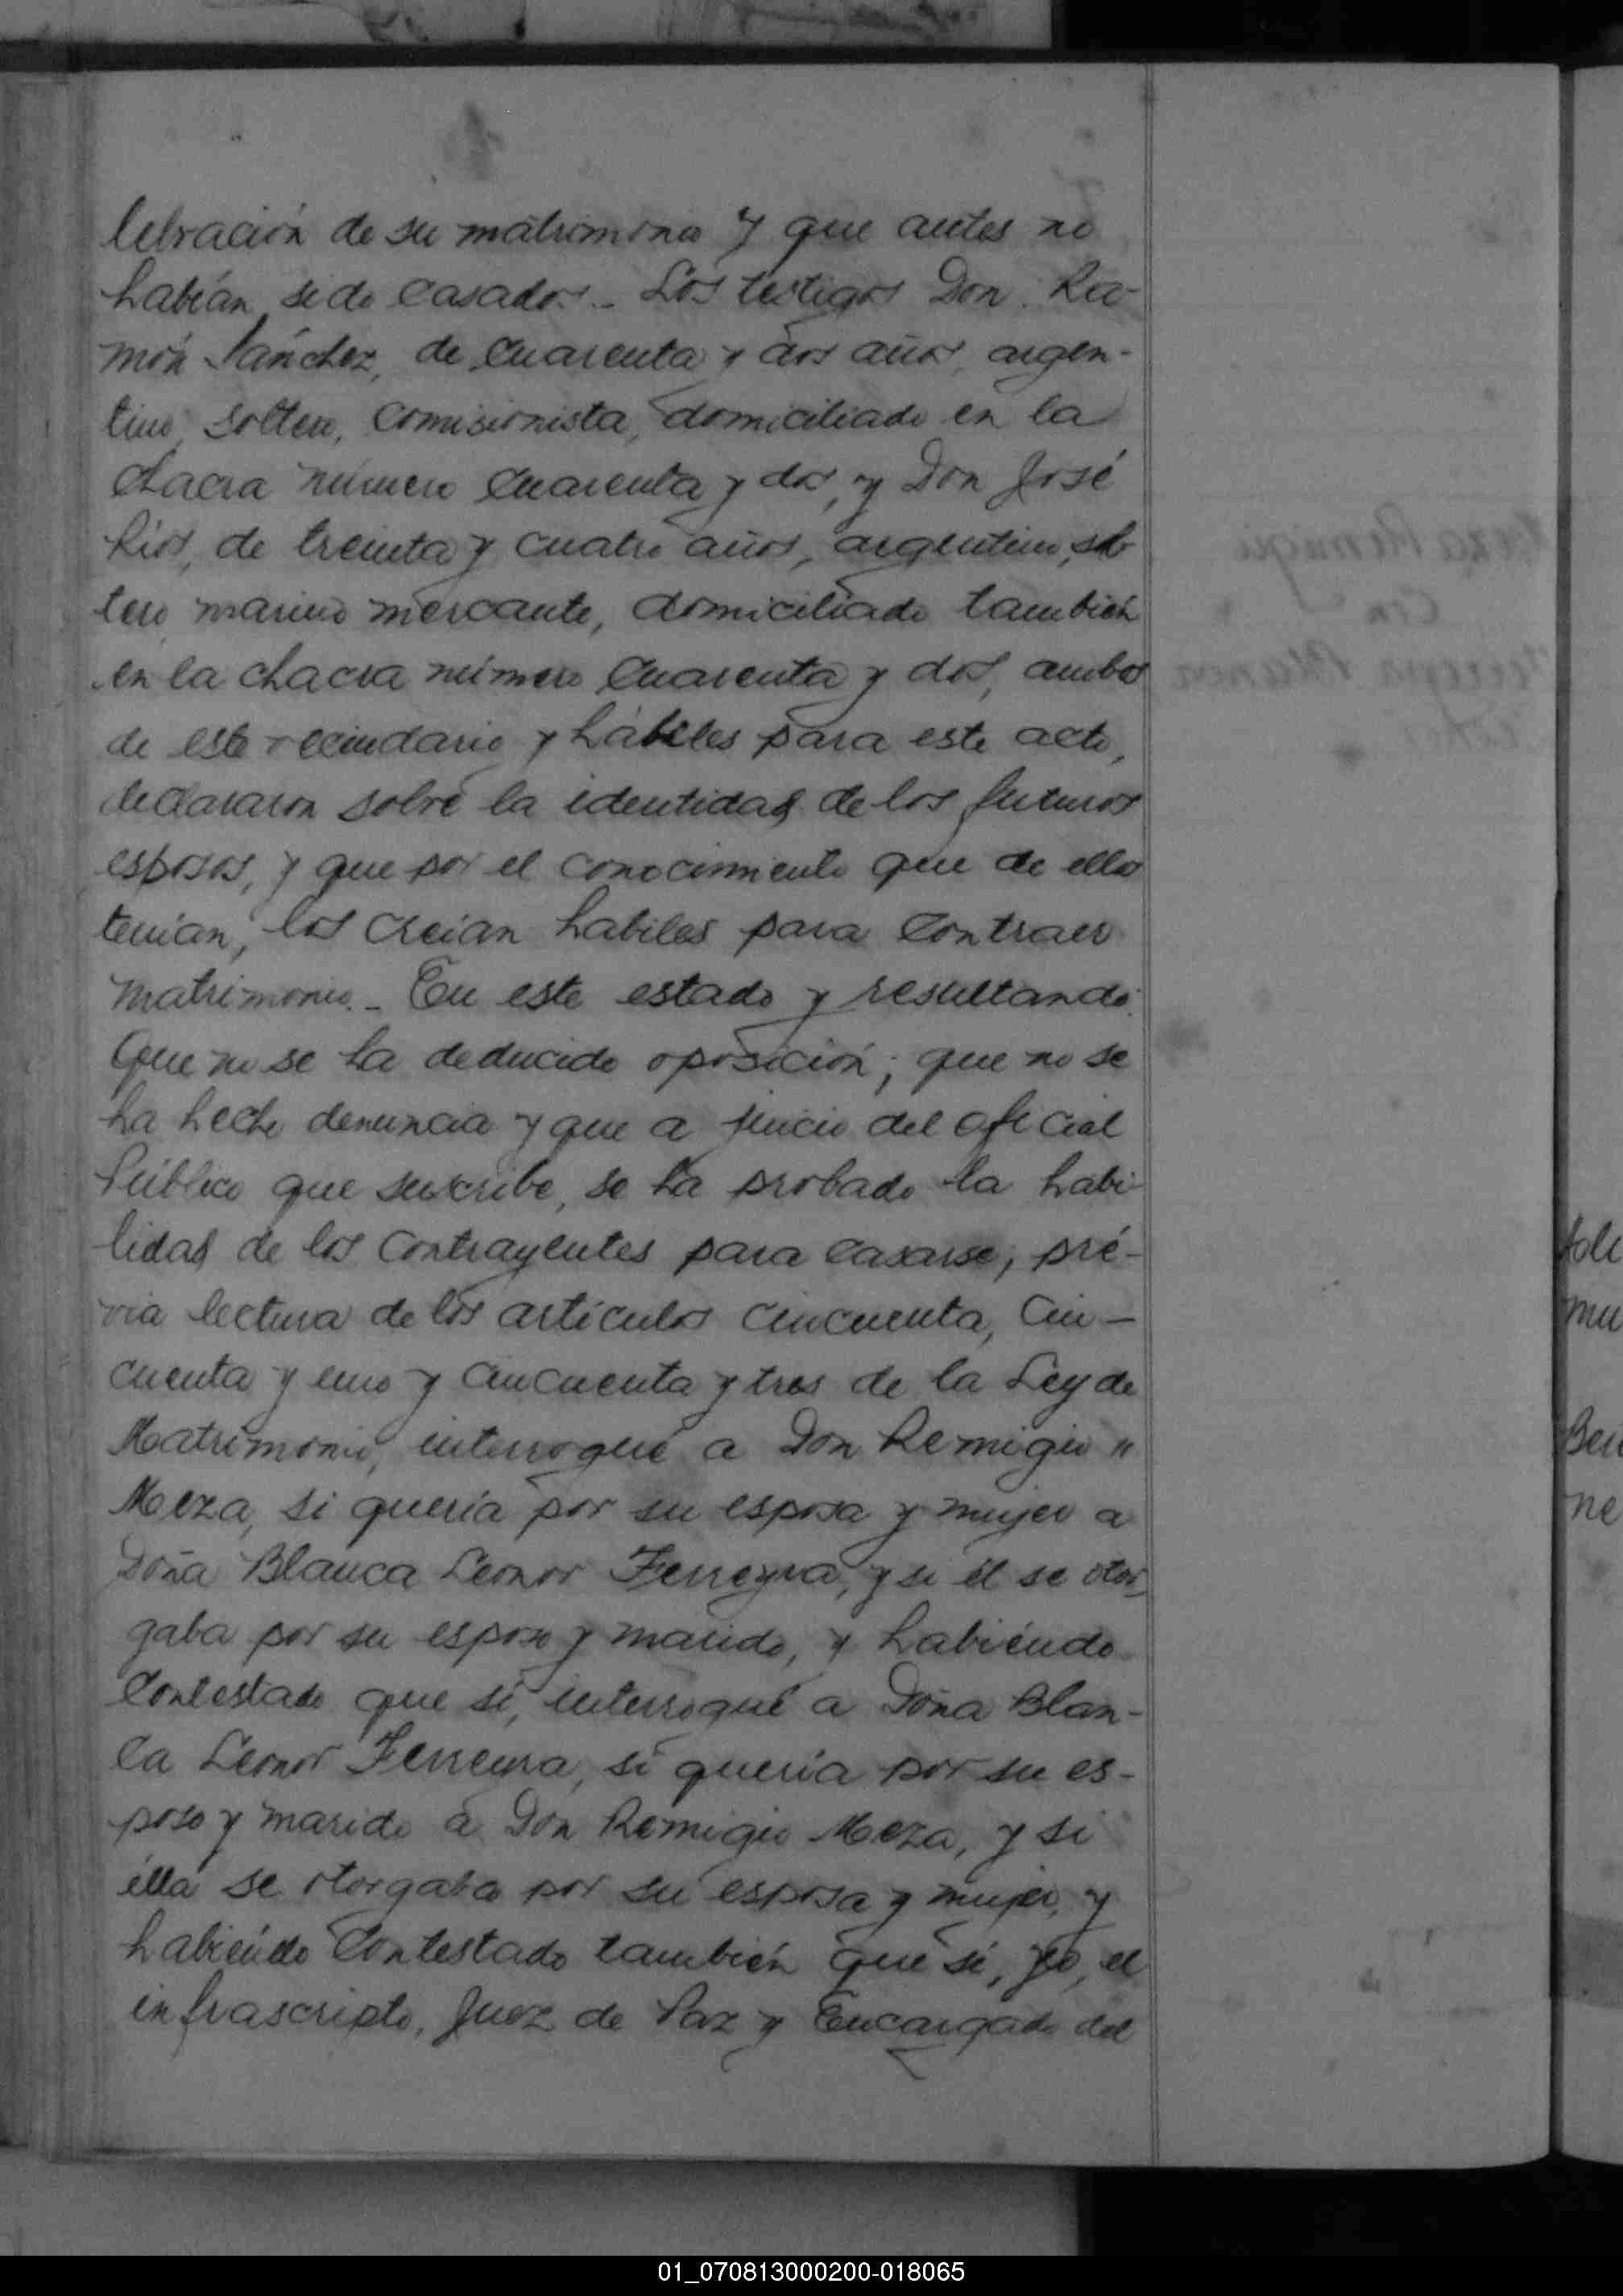 lebración de su matrimonio y que antes no
habían sido casados.- Los testigos Don Ra-
món Sánchez, de cuarenta y dos años, argen-
tino, soltero, comisionista, domiciliado en la
chacra número cuarenta y dos, y Don José
Ríos, de treinta y cuatro años, argentino, sol-
tero, marino mercante, domiciliado también
en la chacra número cuarenta y dos, ambos
de este vecindario y hábiles para este acto,
declararon sobre la identidad de los futuros
esposos, y que por el conocimiento que de ellos
tenían, los creían habiles para contraer
matrimonio.- En este estado y resultando:
Que no se ha deducido oposición; que no se
ha hecho denuncia y que a juicio del oficial
Público que suscribe, se ha probado la habi-
lidad de los contrayentes para casarse; pré-
via lectura de los artículos cincuenta, cin-
cuenta y uno y cincuenta y tres de la Ley de
Matrimonio, interrogué a Don Remigio "
Meza, si quería por su esposa y mujer a
Doña Blanca Leonor Ferreyra, y si él se otor-
gaba por su esposo y marido, y habiéndo
contestado que sí, interrogué a Doña Blan-
ca Leonor Ferreyra, si quería por su es-
poso y marido a Don Remigio Meza, y si
élla se otorgaba por su esposa y mujer, y
habiéndo contestado también que sí, yo, el
infrascripto, Juez de Paz y Encargado del
Meza Remigio
con
Ferreyra Blanca
mu
ne
01_070813000200-018065